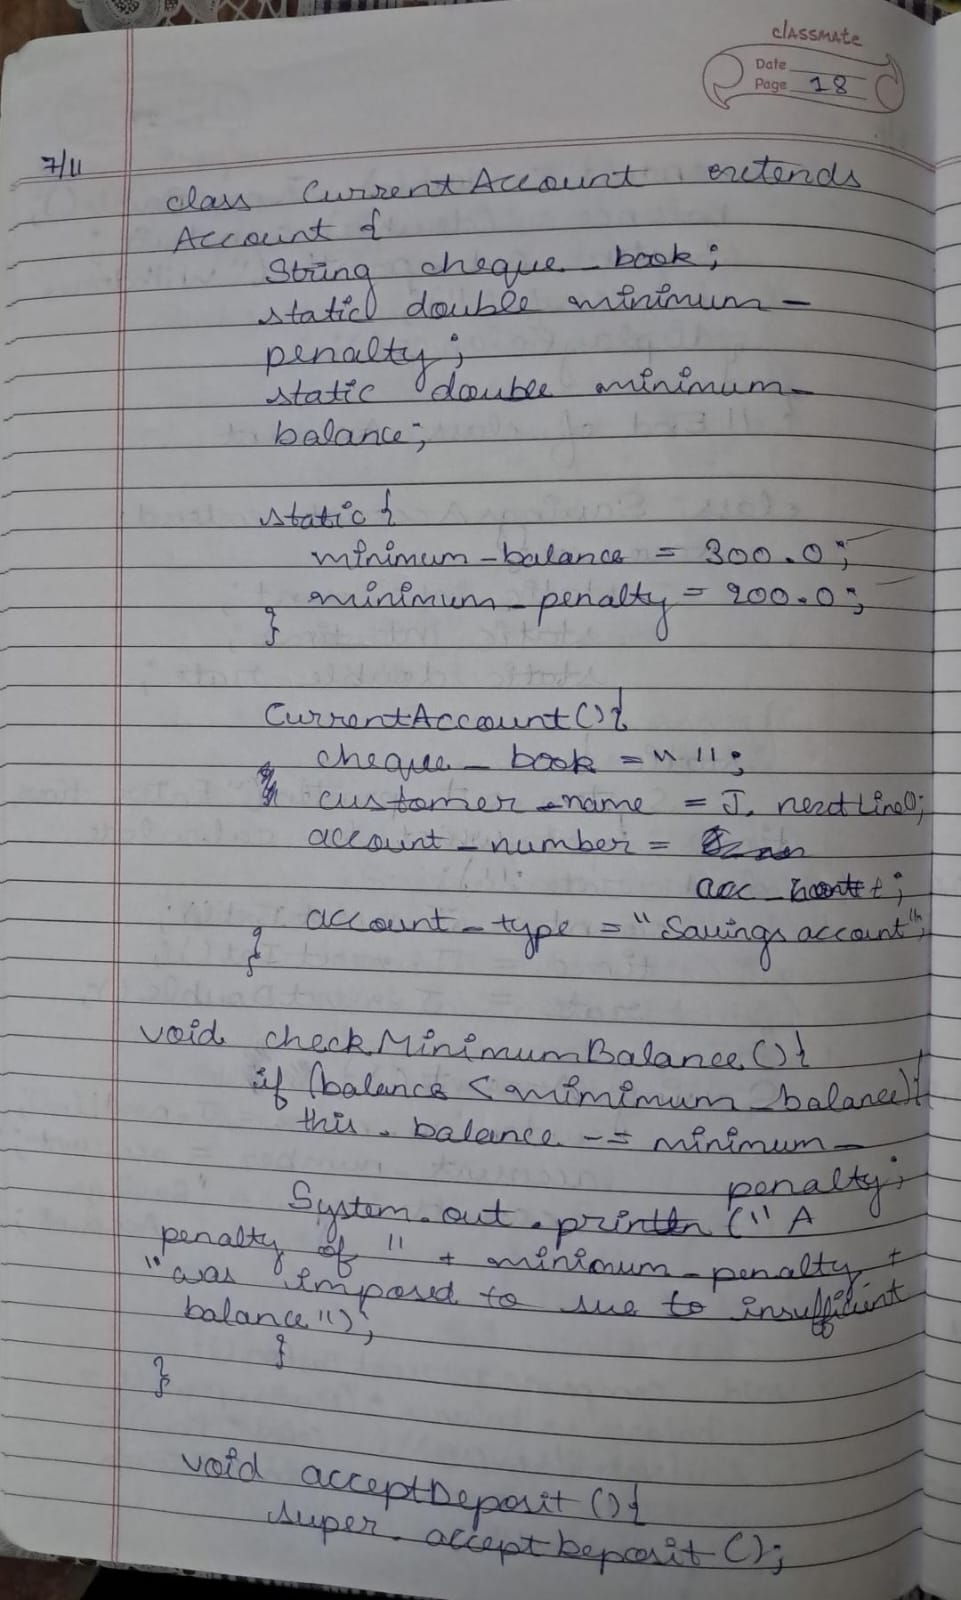 classmate
Date
Page 18
7/11
class CurrentAccount extends
Account {
String cheque_book;
static double minimum_
penalty;
static double minimum_
balance;
static {
minimum_balance = 300.0;
minimum_penalty = 200.0;
}
CurrentAccount(){
cheque_book = " ";
customer_name = I. nextLine();
account_number =
acc_count;
account_type = "Savings account";
}
void checkMinimumBalance(){
if (balance < mimimum_balance){
this.balance -= minimum_
penalty;
System.out.println("A
penalty of " + minimum_penalty +
"was imposed to sue to insufficient
balance");
}
}
void acceptDeposit(){
super.acceptDeposit();